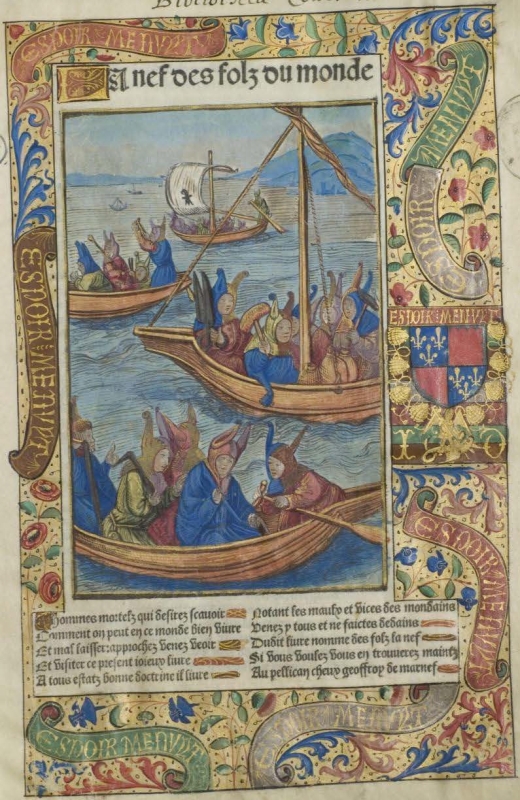 ESPOIR MENUYT
La nef des folz du monde
MENUYT
ESPOIR
ESPOIR MENUYT
ESPOIR MENUYT
Hommes mortelz qui desirez scauoir
Comment on peut en ce monde bien viure
Et mal laisser: approchez venez veoir
Et visiter ce present ioieux liure
A tous estatz bonne doctrine il liure
Notant les maulx et vices des mondains
Venez y tous et ne faictes dedains
Dudit liure nomme des folz la nef
Si vous voulez vous en trouuerez maintz
Au pellican cheux geoffroy de marnef
ESPOIR MENUYT
ESPOIR MENUYT
ESPOIR MENUYT